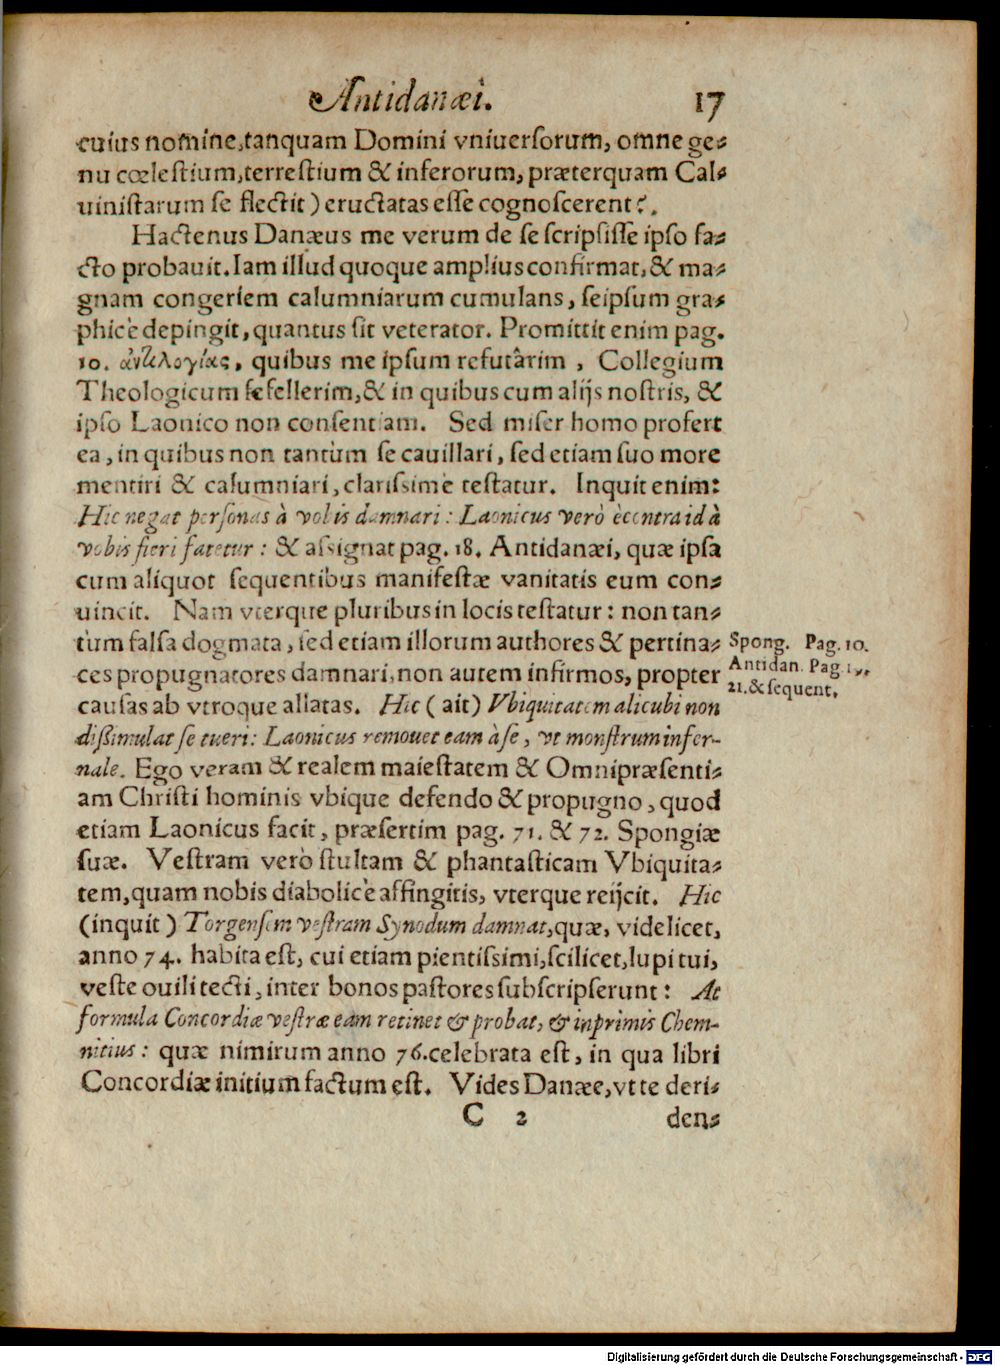 Antidanæi. 17
cuius nomine, tanquam Domini vniuersorum, omne ge-
nu cœlestium, terrestium & inferorum, præterquam Cal-
uinistarum se flectit) eructatas esse cognoscerent?.
Hactenus Danæus me verum de se scripsisse ipso fa-
cto probauit. Iam illud quoque amplius confirmat, & ma-
gnam congeriem calumniarum cumulans, seipsum gra-
phicè depingit, quantus sit veterator. Promittit enim pag.
10. ἀντιλογίας, quibus me ipsum refutârim, Collegium
Theologicum fefellerim, & in quibus cum alijs nostris, &
ipso Laonico non consentiam. Sed miser homo profert
ea, in quibus non tantùm se cauillari, sed etiam suo more
mentiri & calumniari, clarissimè testatur. Inquit enim:
Hic negat personas à vobis damnari: Laonicus verò è contra id à
vobis fieri fatetur: & assignat pag. 18. Antidanæi, quæ ipsa
cum aliquot sequentibus manifestæ vanitatis eum con-
uincit. Nam vterque pluribus in locis testatur: non tan-
tùm falsa dogmata, sed etiam illorum authores & pertina-
ces propugnatores damnari, non autem infirmos, propter
causas ab vtroque allatas. Hic (ait) Vbiquitatem alicubi non
dißimulat se tueri: Laonicus remouet eam à se, vt monstrum infer-
nale. Ego veram & realem maiestatem & Omnipræsenti-
am Christi hominis vbique defendo & propugno, quod
etiam Laonicus facit, præsertim pag. 71. & 72. Spongiæ
suæ. Vestram verò stultam & phantasticam Vbiquita-
tem, quam nobis diabolicè affingitis, vterque reijcit. Hic
(inquit) Torgensem vestram Synodum damnat, quæ, videlicet,
anno 74. habita est, cui etiam pientissimi, scilicet, lupi tui,
veste ouili tecti, inter bonos pastores subscripserunt: At
formula Concordiæ vestræ eam retinet & probat, & inprimis Chem-
nitius: quæ nimirum anno 76. celebrata est, in qua libri
Concordiæ initium factum est. Vides Danæe, vt te deri-
C 2 den-
Spong. Pag. 10.
Antidan. Pag.
21. & sequent.
Digitalisierung gefördert durch die Deutsche Forschungsgemeinschaft - DFG